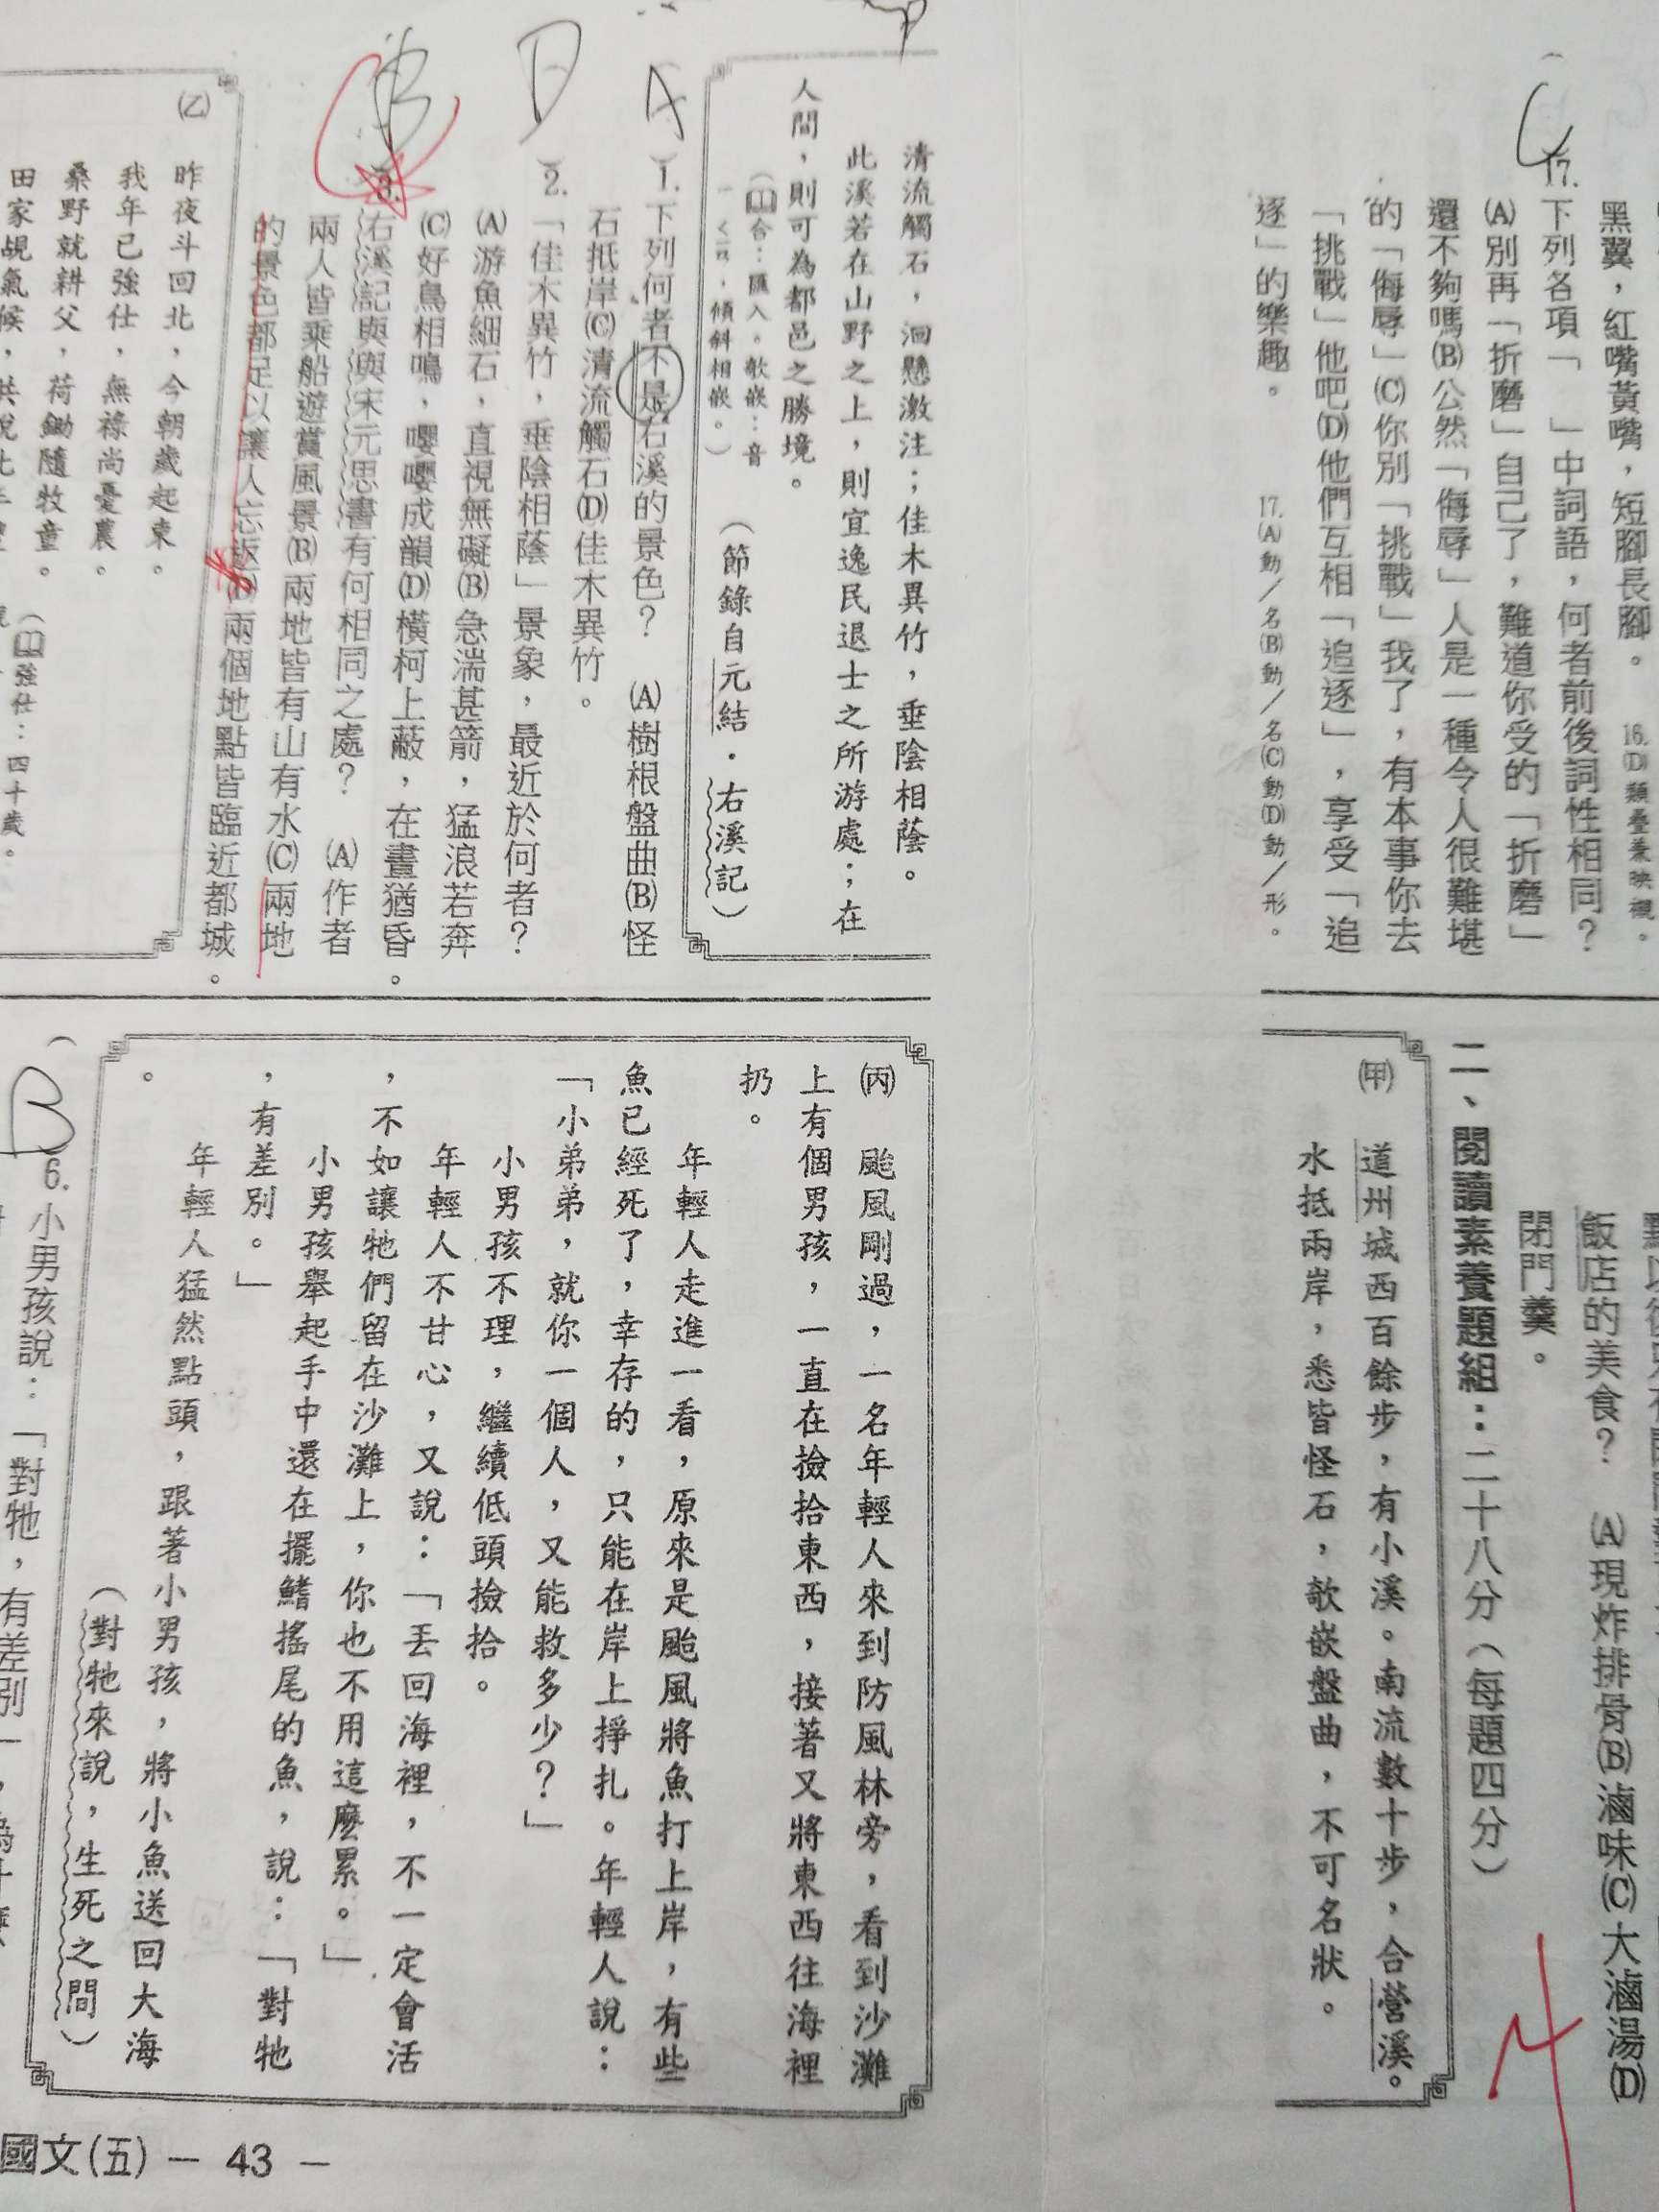 黑翼，紅嘴黃嘴，短腳長腳。
16.(D)類疊兼映襯。
C
17.下列各項「　」中詞語，何者前後詞性相同？
(A)別再「折磨」自己了，難道你受的「折磨」
還不夠嗎(B)公然「侮辱」人是一種令人很難堪
的「侮辱」(C)你別「挑戰」我了，有本事你去
「挑戰」他吧(D)他們互相「追逐」，享受「追
逐」的樂趣。
17.(A)動／名(B)動／名(C)動(D)動／形。
飯店的美食？　(A)現炸排骨(B)滷味(C)大滷湯(D)
閉門羹。
二、閱讀素養題組：二十八分（每題四分）
(甲)　道州城西百餘步，有小溪。南流數十步，合營溪。
水抵兩岸，悉皆怪石，欹嵌盤曲，不可名狀。
清流觸石，洄懸激注；佳木異竹，垂陰相蔭。
此溪若在山野之上，則宜逸民退士之所游處；在
人間，則可為都邑之勝境。
（節錄自元結．右溪記）
（合：匯入。欹嵌：音
ㄧ ㄑㄧㄢ，傾斜相嵌。）
A
（1.下列何者不是右溪的景色？　(A)樹根盤曲(B)怪
石抵岸(C)清流觸石(D)佳木異竹。
D
（2.「佳木異竹，垂陰相蔭」景象，最近於何者？
(A)游魚細石，直視無礙(B)急湍甚箭，猛浪若奔
(C)好鳥相鳴，嚶嚶成韻(D)橫柯上蔽，在晝猶昏。
B
C
3.右溪記與與宋元思書有何相同之處？　(A)作者
兩人皆乘船遊賞風景(B)兩地皆有山有水(C)兩地
的景色都足以讓人忘返(D)兩個地點皆臨近都城。
(乙)　昨夜斗回北，今朝歲起東。
我年已強仕，無祿尚憂農。
桑野就耕父，荷鋤隨牧童。
田家覘氣候，共說此年
（強仕：四十歲。
(丙)　颱風剛過，一名年輕人來到防風林旁，看到沙灘
上有個男孩，一直在撿拾東西，接著又將東西往海裡
扔。
年輕人走進一看，原來是颱風將魚打上岸，有些
魚已經死了，幸存的，只能在岸上掙扎。年輕人說：
「小弟弟，就你一個人，又能救多少？」
小男孩不理，繼續低頭撿拾。
年輕人不甘心，又說：「丟回海裡，不一定會活
，不如讓牠們留在沙灘上，你也不用這麼累。」
小男孩舉起手中還在擺鰭搖尾的魚，說：「對牠
，有差別。」
年輕人猛然點頭，跟著小男孩，將小魚送回大海
。
（對牠來說，生死之間）
B
（
6.小男孩說：「對牠，有差別」，為什麼
國文(五) － 43 －